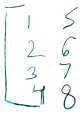 1 5
2 6
3 7
4 8